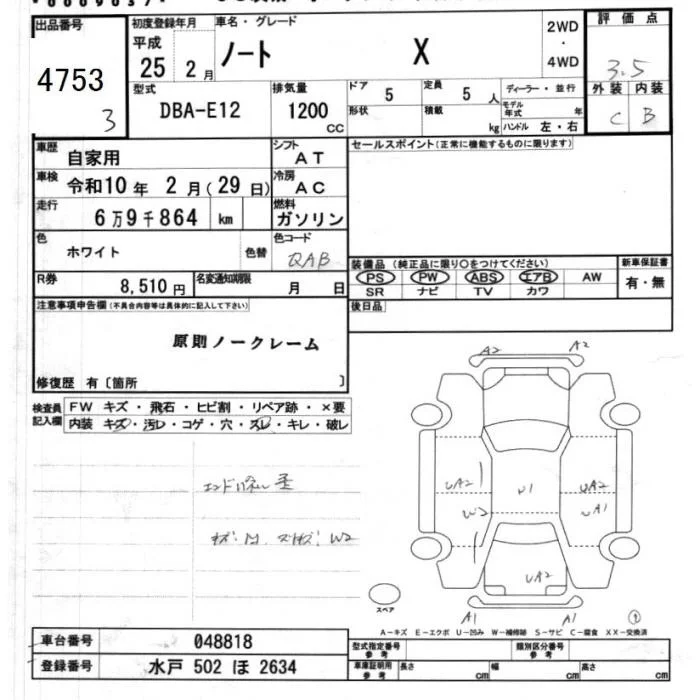 出品番号
4753
3
初度登録年月
平成
25 2月
車名・グレード
ノート X
2WD
・
4WD
評価点
3.5
外装 内装
C B
型式
DBA-E12
排気量
1200
cc
ドア 5
形状
定員 5 人
積載 kg
ディーラー・並行
モデル年式 年
ハンドル 左・右
車歴 自家用
シフト AT
車検 令和10年 2月(29日)
冷房 AC
走行 6万9千864 km
燃料 ガソリン
色 ホワイト 色替
色コード QAB
R券 8,510円
名変通知期限 月 日
セールスポイント(正常に機能するものに限ります)
装備品(純正品に限り○をつけてください)
新車保証書
PS PW ABS エアB AW
有・無
SR ナビ TV カワ
後日品
注意事項申告欄(不具合内容等は具体的に記入して下さい)
原則ノークレーム
修復歴 有〔箇所 〕
検査員記入欄
FW キズ・飛石・ヒビ割・リペア跡・×要
内装 キズ・汚レ・コゲ・穴・スレ・キレ・破レ
W2
A2 A2
UA2 W1 UA2
W2 UA1
UA2
A1 A1
スペア
A-キズ E-エクボ U-凹み W-補修跡 S-サビ C-腐食 XX-交換済
車台番号 048818
登録番号 水戸 502 ほ 2634
型式指定番号 参考
類別区分番号 参考
車庫証明用 参考
長さ cm
幅 cm
高さ cm